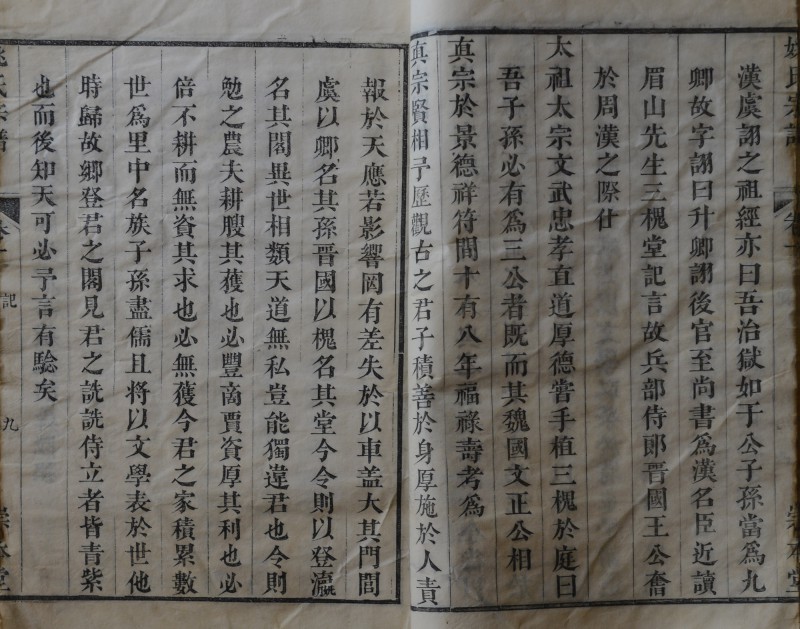 漢虞詡之祖經亦曰吾治獄如于公子孫當為九
卿故字詡曰升卿詡後官至尚書為漢名臣近讀
眉山先生三槐堂記言故兵部侍郎晉國王公奮
於周漢之際仕
太祖太宗文武忠孝直道厚德嘗手植三槐於庭曰
吾子孫必有為三公者既而其魏國文正公相
真宗於景德祥符間十有八年福祿壽考為
真宗賢相予歷觀古之君子積善於身厚施於人責
報於天應若影響罔有差失於以車盖大其門閭
虞以卿名其孫晉國以槐名其堂今令則以登瀛
名其閣異世相類天道無私豈能獨違君也令則
勉之農夫耕膄其獲也必豐商賈資厚其利也必
倍不耕而無資其求也必無獲今君之家積累數
世為里中名族子孫盡儒且將以文學表於世他
時歸故鄉登君之閣見君之詵詵侍立者皆青紫
也而後知天可必予言有騐矣
姚氏宗譜
記
九